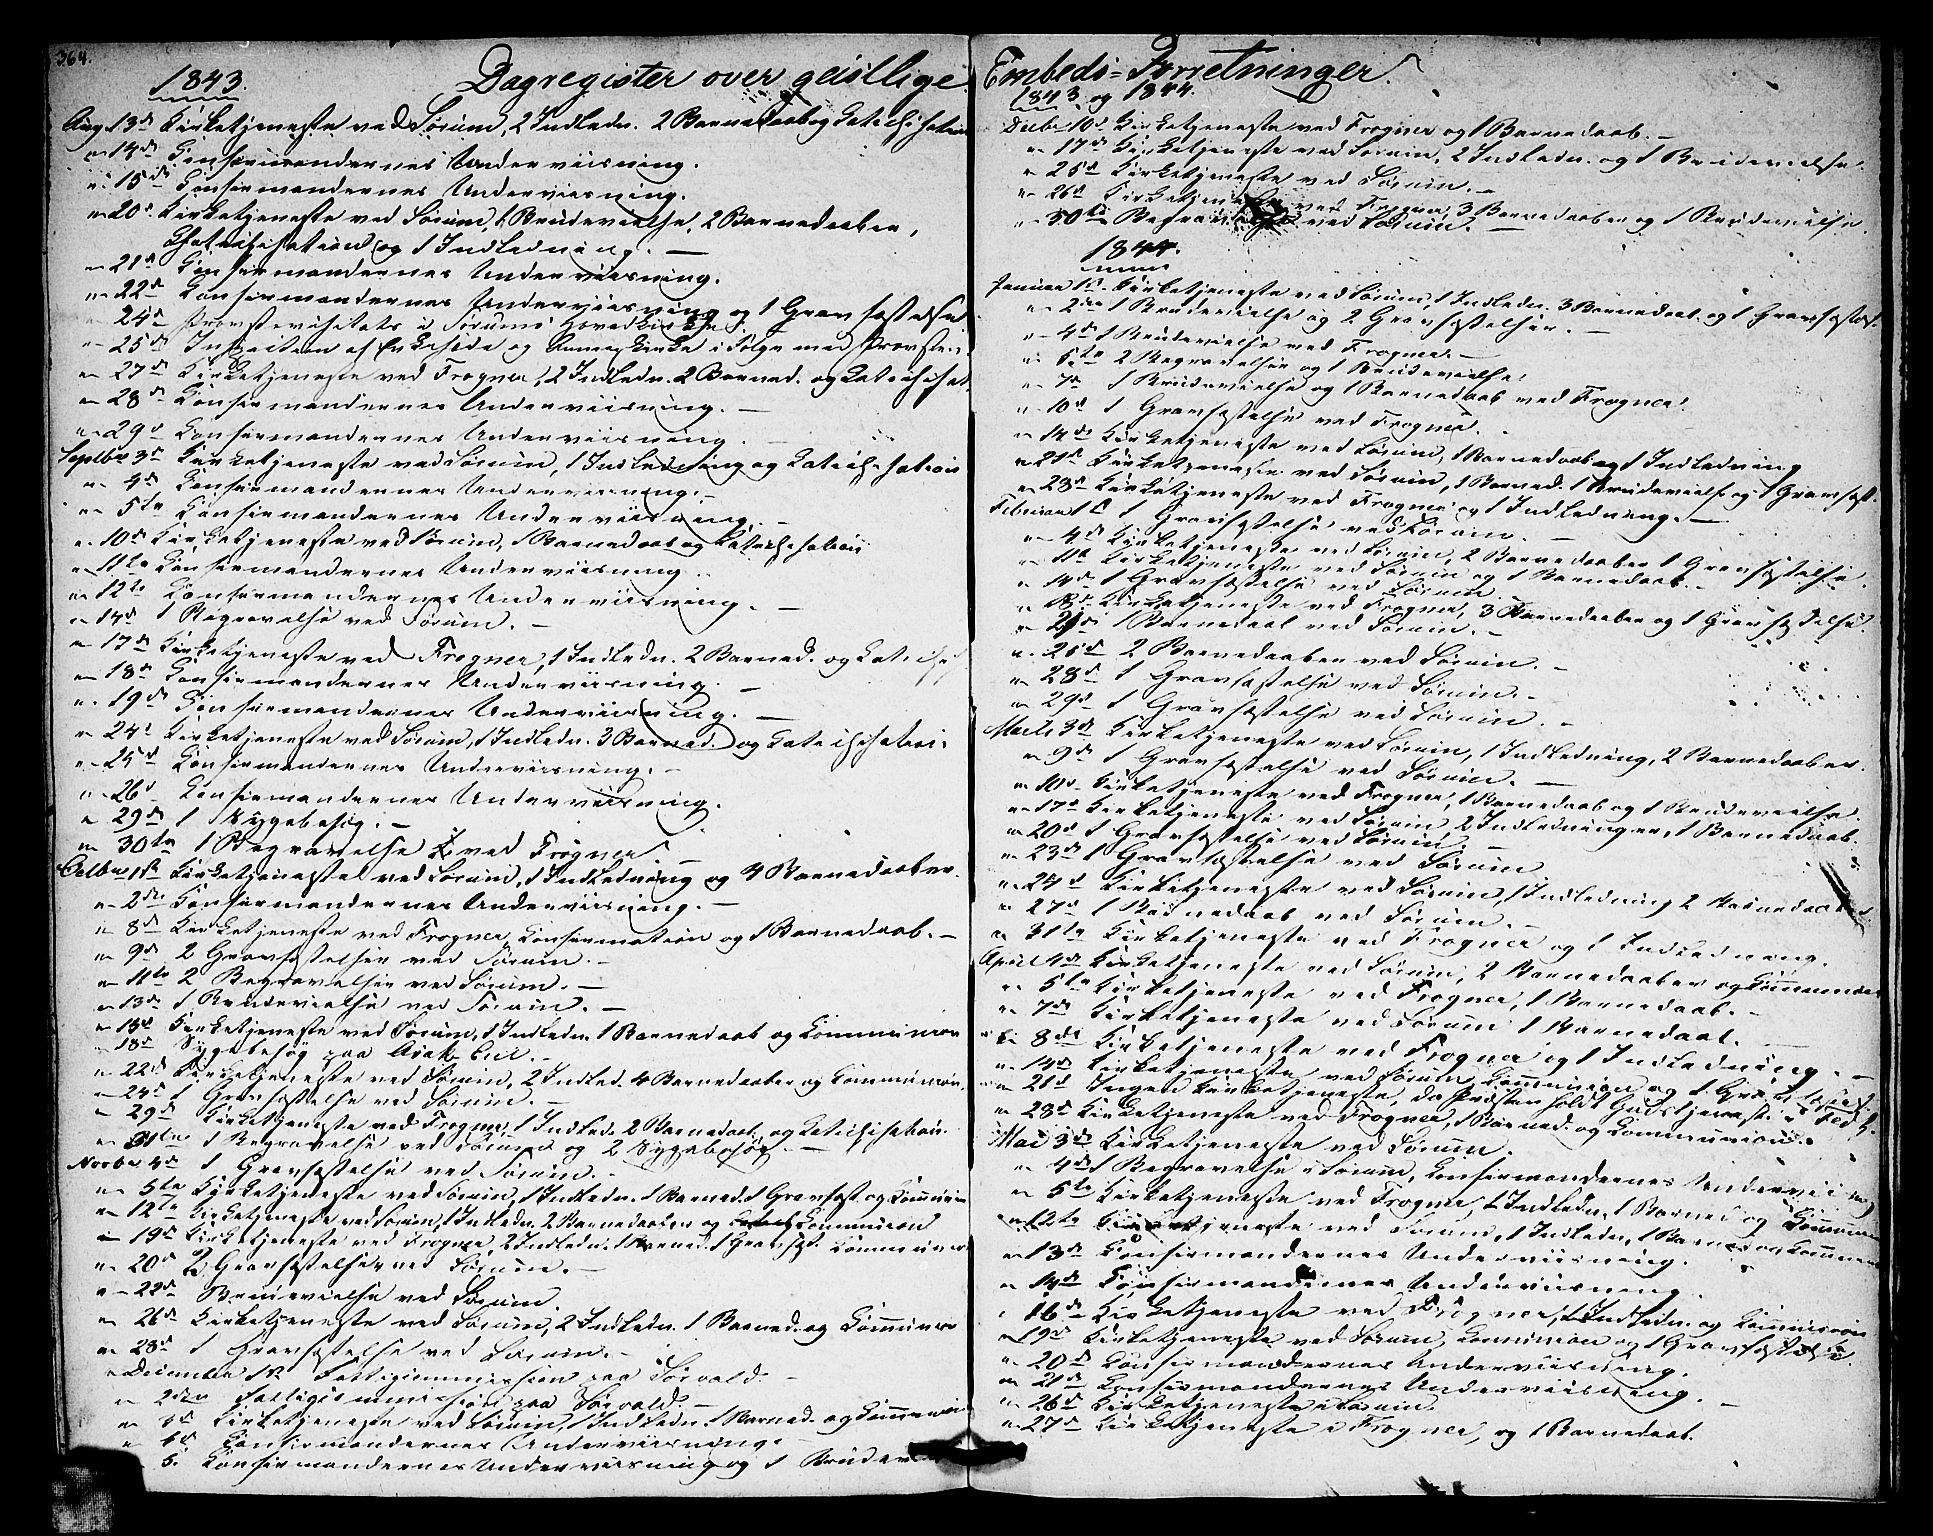 364.
Dagregister over geistlige Embeds-Forretninger.
1843.
Aug. 13de Kirketjeneste ved Sørum, 2 Indledn. 2 Barnedaab og Catechisation
" 14de Confirmandernes Underviisning.
" 15de Confirmandernes Underviisning.
" 20de Kirketjeneste ved Sørum, 1 Brudevielse, 2 Barnedaaber,
Chatechisation og 1 Indledning. —
" 21de Confirmandernes Underviisning.
" 22de Confirmandernes Underviisning og 1 Gravfæstelse
" 24de Provstevisitats i Sørums Hovedkirke.
" 25de Inspection af og Anneskirke i Følge med Provsten.
" 27de Kirketjeneste ved Frogner, 2 Indledn. 2 Barned. og Catechisat.
" 28de Confirmandernes Underviisning. —
" 29de Confirmandernes Underviisning. —
Septbr 3de Kirketjeneste ved Sørum, 1 Indledning og Catechisation
" 4de Confirmandernes Underviisning. —
" 5te Confirmandernes Underviisning. —
" 10de Kirketjeneste ved Sørum, 1 Barnedaab og Catechisation
" 11te Confirmandernes Underviisning.
" 12te Confirmandernes Underviisning. —
" 14de 1 Begravelse ved Sørum. —
" 17de Kirketjeneste ved Frogner, 1 Indledn. 2 Barned. og Catechis.
" 18de Confirmandernes Underviisning. —
" 19de Confirmandernes Underviisning. —
" 24de Kirketjeneste ved Sørum, 1 Indledn. 3 Barned. og Catechisation.
" 25de Confirmandernes Underviisning. —
" 26de Confirmandernes Underviisning.
" 29de 1 Sygebesøg. —
" 30te 1 Begravelse ved Frogner. —
Octbr 1ste Kirketjeneste ved Sørum, 1 Indledning og 4 Barnedaaber.
" 2den Confirmandernes Underviisning. —
" 8de Kirketjeneste ved Frogner, Confirmation og 1 Barnedaab. —
" 9de 2 Gravfæstelser ved Sørum. —
" 11te 2 Begravelser ved Sørum. —
" 13de 1 Brudevielse ved Sørum. —
" 15de Kirketjeneste ved Sørum, 1 Indledn. 1 Barnedaab og Communion
" 18de Sygebesøg paa Asak Eie. —
" 22de Kirketjeneste ved Sørum, 2 Indled. 4 Barnedaaber og Communion.
" 24de 1 Gravfæstelse ved Sørum. —
" 29de Kirketjeneste ved Frogner, 1 Indled. 2 Barnedaab. og Catechisation.
" 31te 1 Begravelse ved Sørum og 2 Sygebesøg. —
Novbr 4de 1 Gravfæstelse ved Sørum. —
" 5te Kirketjeneste ved Sørum, 1 Indledn. 1 Barned. 1 Gravfæst. og Communion
" 12te Kirketjeneste ved Sørum, 1 Indledn. 2 Barnedaaber og Communion
" 19de Kirketjeneste ved Frogner, 2 Indledn. 1 Barned. 1 Gravfæst. Communion
" 20de 2 Gravfæstelser ved Sørum. —
" 22de Brudevielse ved Sørum.
" 26de Kirketjeneste ved Sørum, 2 Indledn. 1 Barned. og Communion
" 28de 1 Gravfæstelse ved Sørum. —
December 1ste paa Sørvald. —
" 2den paa Sørvald. —
" 3de Kirketjeneste ved Sørum, 1 Indledn. 1 Barned. og Communion
" 4de Confirmandernes Underviisning. —
" 5. Confirmandernes Underviisning og 1 Brudev
1843 og 1844.
Decbr 10de Kirketjeneste ved Frogner og 1 Barnedaab. —
" 17de Kirketjeneste ved Sørum, 2 Indledn. og 1 Brudevielse.
" 25de Kirketjeneste ved Sørum. —
" 26de Kirketjeneste ved Frogner, 3 Barnedaaber og 1 Brudevielse.
" 30te ved Sørum. —
1844.
Januar 1ste Kirketjeneste ved Sørum, 1 Indledn. 3 Barnedaab. og 1 Gravfæstelse.
" 2den 1 Brudevielse og 2 Gravfæstelser. —
" 4de 1 Brudevielse ved Frogner. —
" 5te 2 Begravelser og 1 Brudevielse.
" 7de 1 Brudevielse og 1 Barnedaab ved Frogner.
" 10de 1 Gravfæstelse ved Frogner.
" 14de Kirketjeneste ved Sørum, 1 Barnedaab og 1 Indledning
" 21de Kirketjeneste ved Sørum, 1 Barned. 1 Brudevielse og 1 Gravfæst.
" 28de Kirketjeneste ved Frogner og 1 Indledning. —
Februar 1ste 1 Gravfæstelse ved Sørum. —
" 4de Kirketjeneste ved Sørum, 2 Barnedaaber 1 Gravfæstelse.
" 11te Kirketjeneste ved Sørum og 1 Barnedaab. —
" 14de 1 Gravfæstelse ved Sørum.
" 18de Kirketjeneste ved Frogner, 3 Barnedaaber og 1 Gravfæstelse.
" 21de 1 Barnedaab ved Sørum. —
" 25de 2 Barnedaaber ved Sørum. —
" 28de 1 Gravfæstelse ved Sørum. —
" 29de 1 Gravfæstelse ved Sørum. —
Marts 3de Kirketjeneste ved Sørum, 1 Indledning, 2 Barnedaaber.
" 9de 1 Gravfæstelse ved Sørum. —
" 10de Kirketjeneste ved Frogner, 1 Barnedaab og 1 Brudevielse.
" 17de Kirketjeneste ved Sørum, 2 Indledninger, 1 Barnedaab.
" 20de 1 Gravfæstelse ved Sørum. —
" 23de 1 Gravfæstelse ved Sørum
" 24de Kirketjeneste ved Sørum, 1 Indledning 2 Barnedaaber
" 27de 1 Barnedaab ved Sørum. —
" 31te Kirketjeneste ved Frogner og 1 Indledning.
April 4de Kirketjeneste ved Sørum, 2 Barnedaaber og Communion
" 5te Kirketjeneste ved Frogner, 1 Barnedaab. —
" 7de Kirketjeneste ved Sørum 1 Barnedaab.
" 8de Kirketjeneste ved Frogner og 1 Indledning. —
" 14de Kirketjeneste ved Sørum, Communion og 1 Gravfæstelse.
" 21de Ingen Kirketjeneste, da Præsten holdt Gudstjeneste i Fedt.
" 28de Kirketjeneste ved Frogner, 1 Barned. og Communion.
Mai 3de Kirketjeneste ved Sørum.
" 4de 1 Begravelse i Sørum, Confirmandernes Underviisning
" 5te Kirketjeneste ved Frogner, 1 Indledn. 1 Barned og Communion
" 12te Kirketjeneste ved Sørum, 1 Indledn. 1 Barned og Communion
" 13de Confirmandernes Underviisning.
" 14de Confirmandernes Underviisning.
" 16de Kirketjeneste ved Frogner, 1 Indledn. og Communion
" 19de Kirketjeneste ved Sørum, Communion og 1 Gravfæstelse.
" 20de Confirmandernes Underviisning.
" 21de Confirmandernes Underviisning. —
" 26de Kirketjeneste i Sørum.
" 27de Kirketjeneste i Frogner, og 1 Barnedaab.